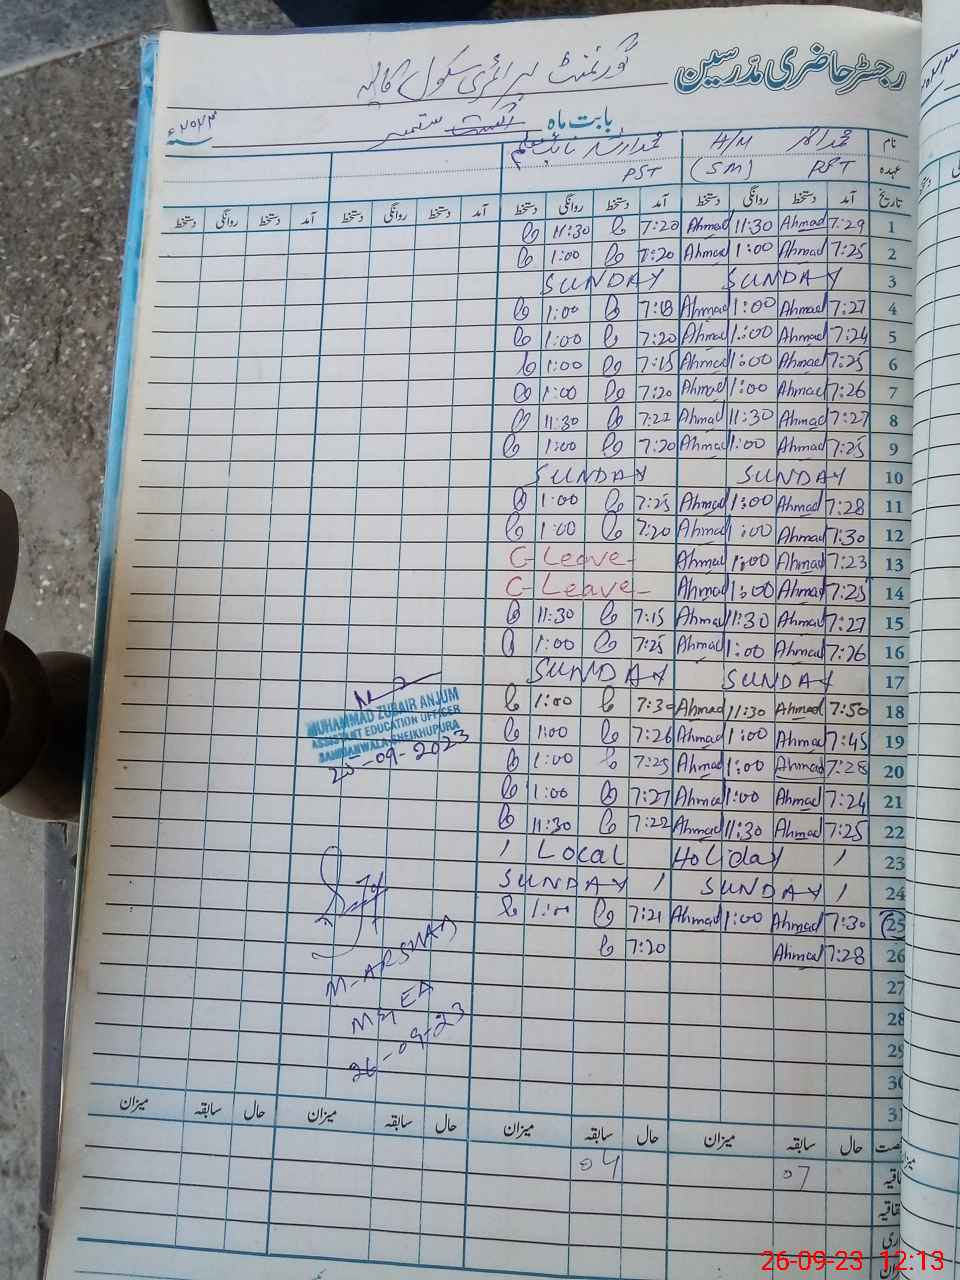 رجسٹر حاضری مدرسین
گورنمنٹ پرائمری سکول
بابت ماہ اگست ستمبر ۲۰۲۳ء
نام H/M
عہدہ PST (SM) PST
تاریخ آمد دستخط روانگی دستخط آمد دستخط روانگی دستخط آمد دستخط روانگی دستخط آمد دستخط روانگی دستخط
1 7:29 Ahmad 11:30 Ahmad 7:20 11:30
2 7:25 Ahmad 1:00 Ahmad 7:20 1:00
3 SUNDAY SUNDAY
4 7:27 Ahmad 1:00 Ahmad 7:18 1:00
5 7:24 Ahmad 1:00 Ahmad 7:20 1:00
6 7:25 Ahmad 1:00 Ahmad 7:15 1:00
7 7:26 Ahmad 1:00 Ahmad 7:20 1:00
8 7:27 Ahmad 11:30 Ahmad 7:22 11:30
9 7:25 Ahmad 1:00 Ahmad 7:20 1:00
10 SUNDAY SUNDAY
11 7:28 Ahmad 1:00 Ahmad 7:25 1:00
12 7:30 Ahmad 1:00 Ahmad 7:20 1:00
13 7:23 Ahmad 1:00 Ahmad C-Leave-
14 7:25 Ahmad 1:00 Ahmad C-Leave-
15 7:27 Ahmad 11:30 Ahmad 7:15 11:30
16 7:26 Ahmad 1:00 Ahmad 7:25 1:00
17 SUNDAY SUNDAY
18 7:50 Ahmad 11:30 Ahmad 7:30 1:00
19 7:45 Ahmad 1:00 Ahmad 7:26 1:00
20 7:28 Ahmad 1:00 Ahmad 7:25 1:00
21 7:24 Ahmad 1:00 Ahmad 7:27 1:00
22 7:25 Ahmad 11:30 Ahmad 7:22 11:30
23 Local Holiday
24 SUNDAY SUNDAY
25 7:30 Ahmad 1:00 Ahmad 7:21 1:00
26 7:28 Ahmad 7:20
27
28
29
30
31
MUHAMMAD ZUBAIR ANJUM
ASSISTANT EDUCATION OFFICER
SHEIKHUPURA
25-09-2023
M-ARSHAD
MEA
26-09-23
حال سابقہ میزان حال سابقہ میزان حال سابقہ میزان حال سابقہ میزان
07 04
26-09-23 12:13